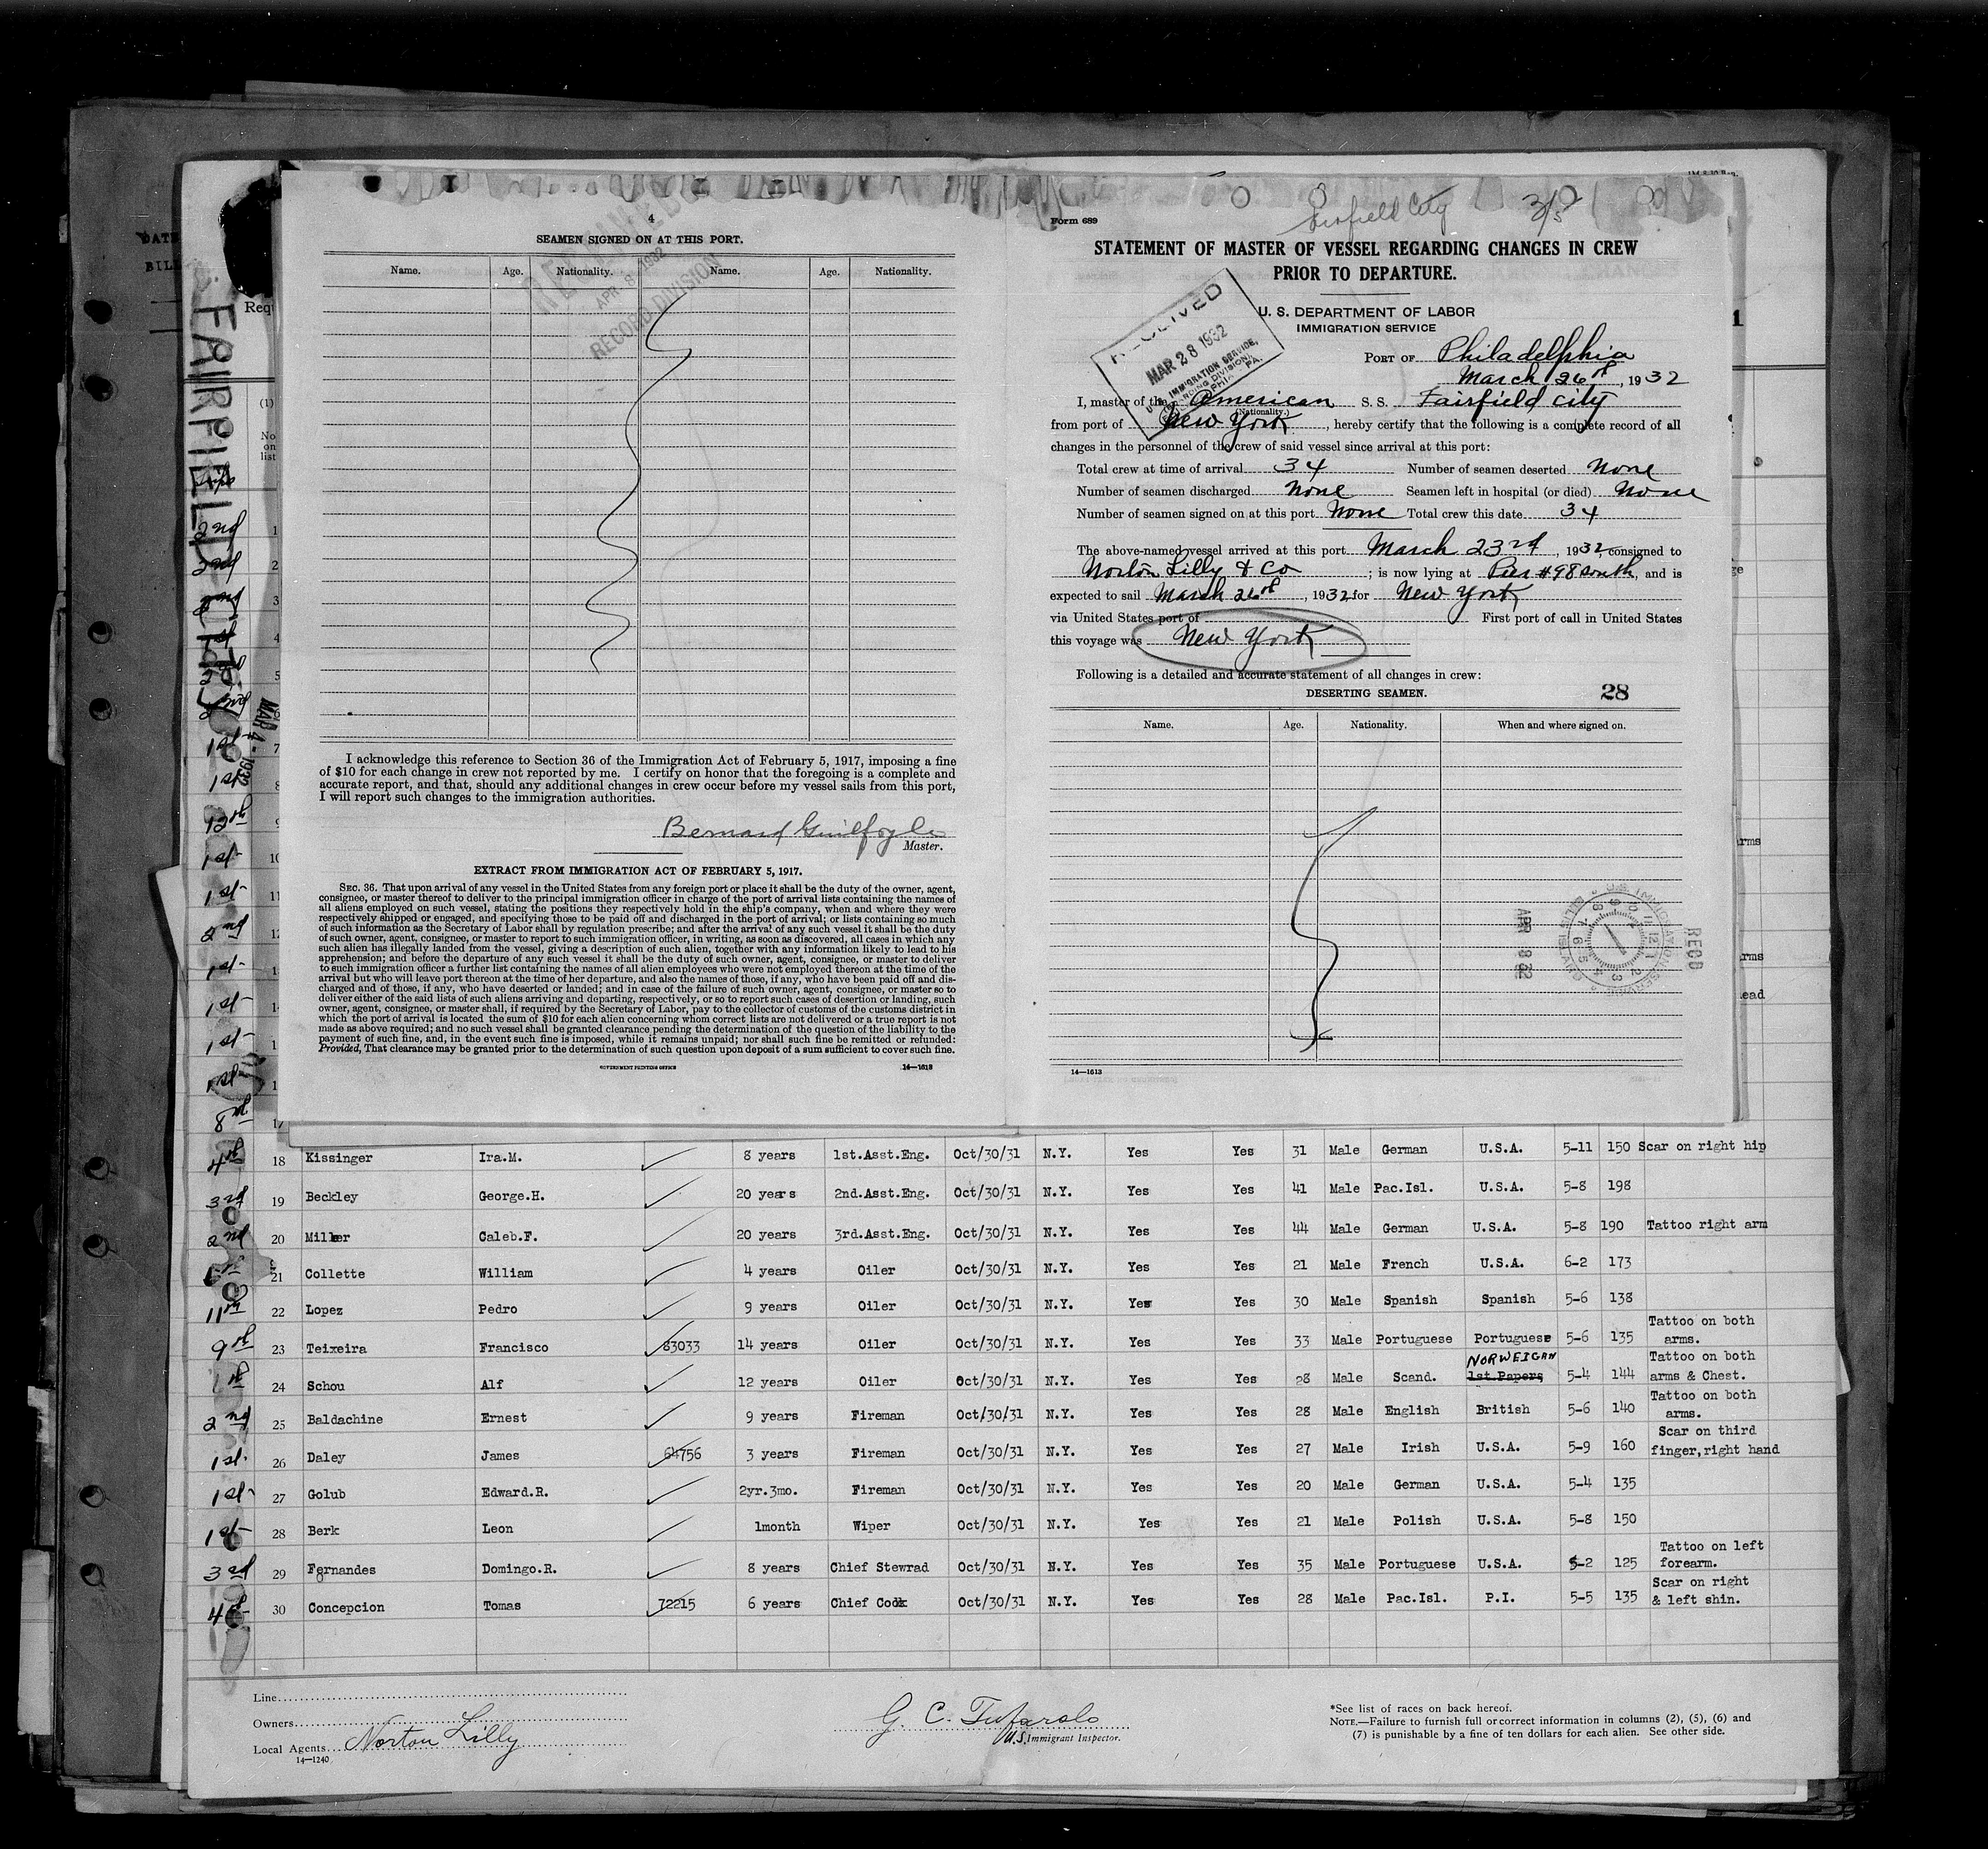 4
SEAMEN SIGNED ON AT THIS PORT.
Name. Age. Nationality. Name. Age. Nationality.
APR 8 1932
RECORD DIVISION
I acknowledge this reference to Section 36 of the Immigration Act of February 5, 1917, imposing a fine
of $10 for each change in crew not reported by me. I certify on honor that the foregoing is a complete and
accurate report, and that, should any additional changes in crew occur before my vessel sails from this port,
I will report such changes to the immigration authorities.
Bernard Guilfoyle
Master.
EXTRACT FROM IMMIGRATION ACT OF FEBRUARY 5, 1917.
SEC. 36. That upon arrival of any vessel in the United States from any foreign port or place it shall be the duty of the owner, agent,
consignee, or master thereof to deliver to the principal immigration officer in charge of the port of arrival lists containing the names of
all aliens employed on such vessel, stating the positions they respectively hold in the ship's company, when and where they were
respectively shipped or engaged, and specifying those to be paid off and discharged in the port of arrival; or lists containing so much
of such information as the Secretary of Labor shall by regulation prescribe; and after the arrival of any such vessel it shall be the duty
of such owner, agent, consignee, or master to report to such immigration officer, in writing, as soon as discovered, all cases in which any
such alien has illegally landed from the vessel, giving a description of such alien, together with any information likely to lead to his
apprehension; and before the departure of any such vessel it shall be the duty of such owner, agent, consignee, or master to deliver
to such immigration officer a further list containing the names of all alien employees who were not employed thereon at the time of the
arrival but who will leave port thereon at the time of her departure, and also the names of those, if any, who have been paid off and dis-
charged and of those, if any, who have deserted or landed; and in case of the failure of such owner, agent, consignee, or master so to
deliver either of the said lists of such aliens arriving and departing, respectively, or so to report such cases of desertion or landing, such
owner, agent, consignee, or master shall, if required by the Secretary of Labor, pay to the collector of customs of the customs district in
which the port of arrival is located the sum of $10 for each alien concerning whom correct lists are not delivered or a true report is not
made as above required; and no such vessel shall be granted clearance pending the determination of the question of the liability to the
payment of such fine, and, in the event such fine is imposed, while it remains unpaid; nor shall such fine be remitted or refunded:
Provided, That clearance may be granted prior to the determination of such question upon deposit of a sum sufficient to cover such fine.
GOVERNMENT PRINTING OFFICE 14—1613
Form 689
Fairfield City
STATEMENT OF MASTER OF VESSEL REGARDING CHANGES IN CREW
PRIOR TO DEPARTURE.
U. S. DEPARTMENT OF LABOR
IMMIGRATION SERVICE
RECEIVED
MAR 28 1932
PORT OF Philadelphia
March 26th, 1932
I, master of the American S. S. Fairfield City
(Nationality.)
from port of New York, hereby certify that the following is a complete record of all
changes in the personnel of the crew of said vessel since arrival at this port:
Total crew at time of arrival 34 Number of seamen deserted None
Number of seamen discharged None Seamen left in hospital (or died) None
Number of seamen signed on at this port None Total crew this date 34
The above-named vessel arrived at this port March 23rd, 1932, consigned to
Norton Lilly & Co; is now lying at Pier #98 South, and is
expected to sail March 26th, 1932 for New York
via United States port of First port of call in United States
this voyage was New York
Following is a detailed and accurate statement of all changes in crew:
DESERTING SEAMEN. 28
Name. Age. Nationality. When and where signed on.
RECD
APR 8 32
14—1613
FAIRFIELD CITY
MAR 4 - 1932
4th 18 Kissinger Ira.M. 8 years 1st.Asst.Eng. Oct/30/31 N.Y. Yes Yes 31 Male German U.S.A. 5-11 150 Scar on right hip
3rd 19 Beckley George.H. 20 years 2nd.Asst.Eng. Oct/30/31 N.Y. Yes Yes 41 Male Pac.Isl. U.S.A. 5-8 198
2nd 20 Miller Caleb.F. 20 years 3rd.Asst.Eng. Oct/30/31 N.Y. Yes Yes 44 Male German U.S.A. 5-8 190 Tattoo right arm
21 Collette William 4 years Oiler Oct/30/31 N.Y. Yes Yes 21 Male French U.S.A. 6-2 173
11th 22 Lopez Pedro 9 years Oiler Oct/30/31 N.Y. Yes Yes 30 Male Spanish Spanish 5-6 138
9th 23 Teixeira Francisco 83033 14 years Oiler Oct/30/31 N.Y. Yes Yes 33 Male Portuguese Portuguese 5-6 135 Tattoo on both arms.
24 Schou Alf 12 years Oiler Oct/30/31 N.Y. Yes Yes 28 Male Scand. NORWEIGAN 1st.Papers 5-4 144 Tattoo on both arms & Chest.
2nd 25 Baldachine Ernest 9 years Fireman Oct/30/31 N.Y. Yes Yes 28 Male English British 5-6 140 Tattoo on both arms.
1st 26 Daley James 64756 3 years Fireman Oct/30/31 N.Y. Yes Yes 27 Male Irish U.S.A. 5-9 160 Scar on third finger,right hand
1st 27 Golub Edward.R. 2yr.3mo. Fireman Oct/30/31 N.Y. Yes Yes 20 Male German U.S.A. 5-4 135
1st 28 Berk Leon 1month Wiper Oct/30/31 N.Y. Yes Yes 21 Male Polish U.S.A. 5-8 150
3rd 29 Fernandes Domingo.R. 8 years Chief Stewrad Oct/30/31 N.Y. Yes Yes 35 Male Portuguese U.S.A. 5-2 125 Tattoo on left forearm.
4th 30 Concepcion Tomas 72215 6 years Chief Cook Oct/30/31 N.Y. Yes Yes 28 Male Pac.Isl. P.I. 5-5 135 Scar on right & left shin.
Line
Owners
Local Agents Norton Lilly
14—1240
G. C. Tufarolo
U.S. Immigrant Inspector.
*See list of races on back hereof.
NOTE.—Failure to furnish full or correct information in columns (2), (5), (6) and
(7) is punishable by a fine of ten dollars for each alien. See other side.